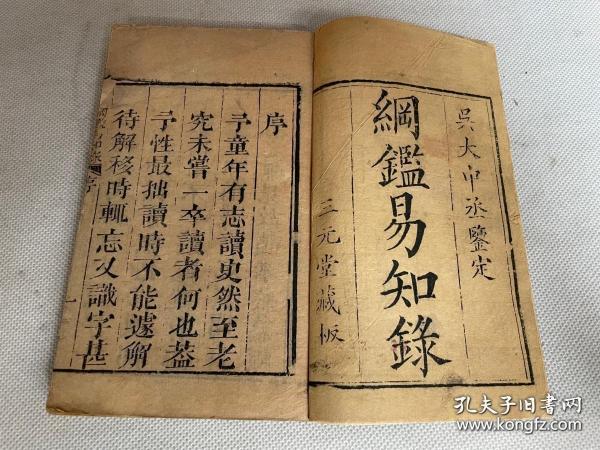 吳大中丞鑒定
綱鑑易知錄
三元堂藏板
序
予童年有志讀史然至老
究未嘗一卒讀者何也葢
予性最拙讀時不能遽解
待解移時輒忘又識字甚
序
一
孔夫子旧书网
kongfz.com